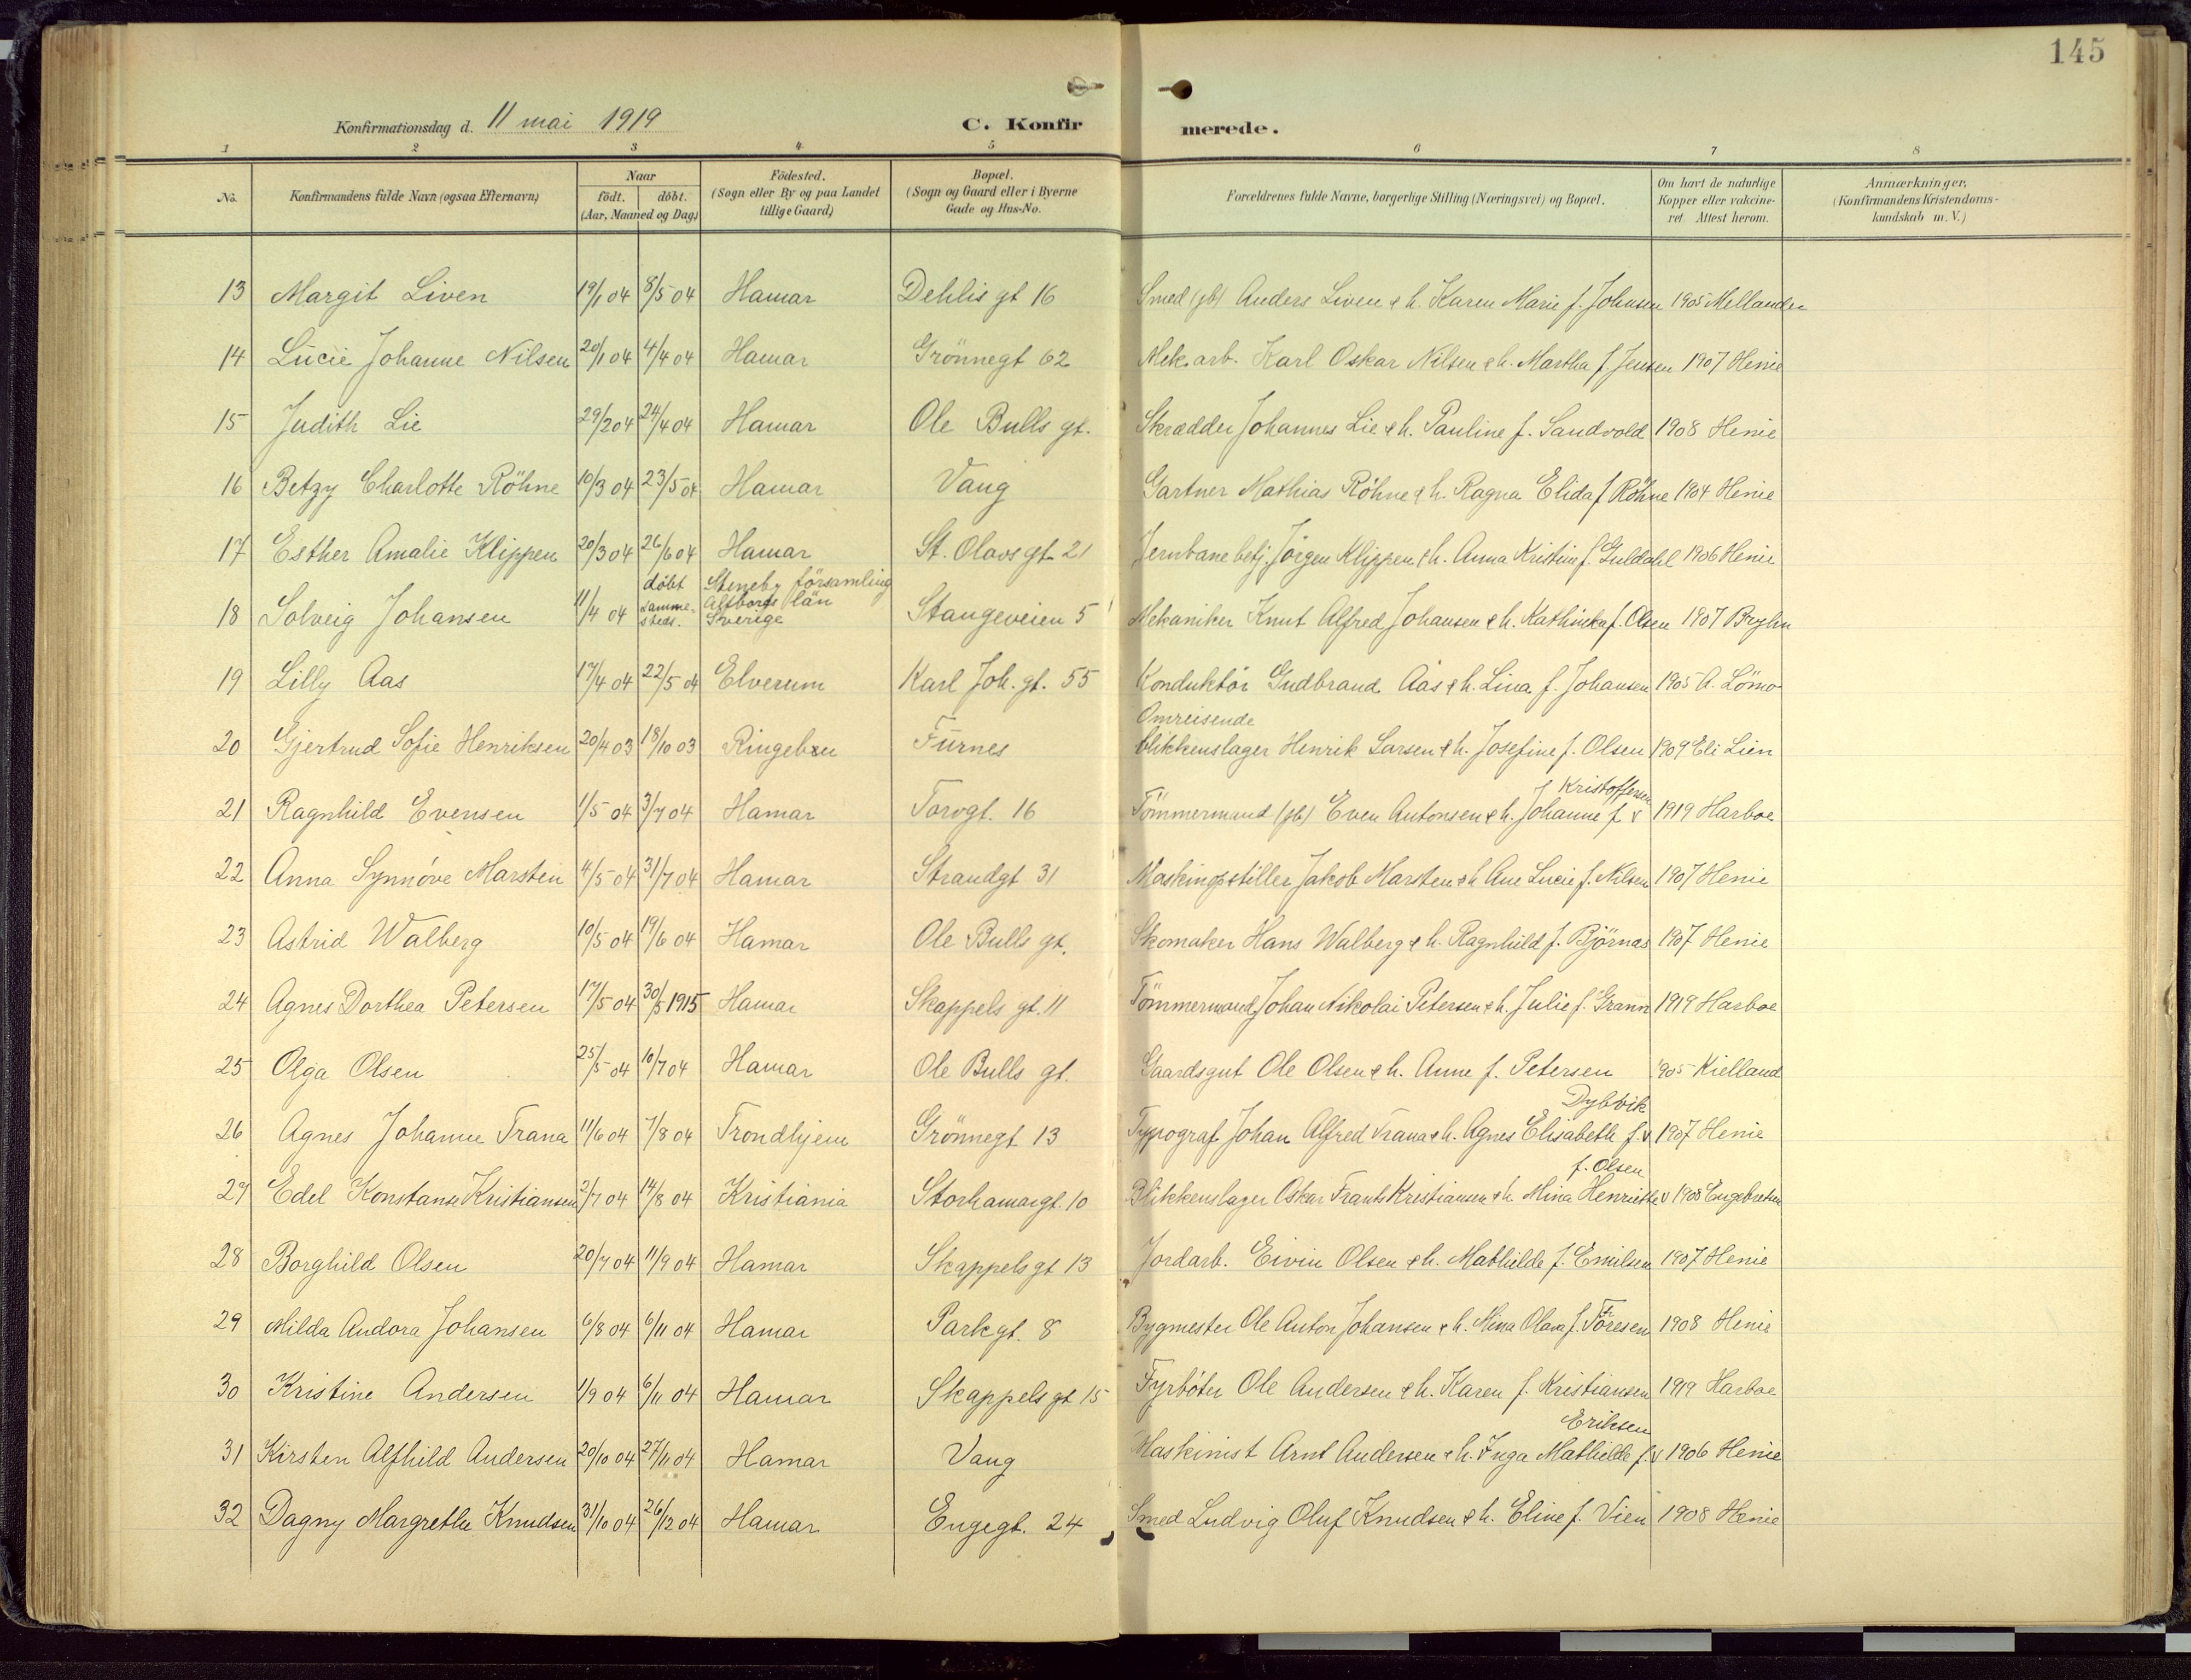 145
Konfirmationsdag d. 11 mai 1919 C. Konfirmerede.
1 2 3 4 5 6 7 8
No. Konfirmandens fulde Navn (ogsaa Efternavn) Naar födt. döbt. (Aar, Maaned og Dag) Födested. (Sogn eller By og paa Landet tillige Gaard) Bopæl. (Sogn og Gaard eller i Byerne Gade og Hus-No. Forældrenes fulde Navne, borgerlige Stilling (Næringsvei) og Bopæl. Om havt de naturlige Kopper eller vakcineret. Attest herom. Anmærkninger, (Konfirmandens Kristendomskundskab m. V.)
13 Margit Liven 19/1 04 8/5 04 Hamar Dehlis gt 16 Smed (gb) Anders Liven & h. Karen Marie f. Johnsen 1905 Mellander
14 Lucie Johanne Nilsen 20/1 04 4/4 04 Hamar Grönnegt 62 Mek. arb. Karl Oskar Nilsen & h. Martha f. Jensen 1907 Henie
15 Judith Lie 29/2 04 24/4 04 Hamar Ole Bulls gt. Skrædder Johannes Lie & h. Pauline f. Sandvold 1908 Henie
16 Betzy Charlotte Röhne 10/3 04 23/5 04 Hamar Vang Gartner Mathias Röhne & h. Ragna Elida f Röhne 1904 Henie
17 Esther Amalie Klippen 20/3 04 26/6 04 Hamar St. Olavs gt 21 Jernbane betj. Jörgen Klippen & h. Anna Kristine f. Guldahl 1906 Henie
18 Solveig Johansen 11/4 04 döbt sammesteds. Steneby församling Älfborgs län Sverige Stangeveien 5 Mekaniker Knut Alfred Johansen & h. Kathinka f. Olsen 1907 Bryhn
19 Lilly Aas 17/4 04 22/5 04 Elverum Karl Joh. gt. 55 Konduktör Gudbrand Aas & h. Lina f. Johansen 1905 A. Lömo
20 Gjertrud Sofie Henriksen 20/4 03 18/10 03 Ringebu Furnes Omreisende blikkenslager Henrik Larsen & h. Josefine f. Olsen 1909 Eli Lien
21 Ragnhild Evensen 1/5 04 3/7 04 Hamar Torvgt. 16 Tömmermand (gb) Even Antonsen & h. Johanne f. v Kristoffersen 1919 Harboe
22 Anna Synnöve Marsten 4/5 04 31/7 04 Hamar Strandgt 31 Maskinopstiller Jakob Marsten & h Ane Lucie f. Nilsen 1907 Henie
23 Astrid Walberg 10/5 04 19/6 04 Hamar Ole Bulls gt. Skomaker Hans Walberg & h. Ragnhild f. Björnas 1907 Henie
24 Agnes Dorthea Petersen 17/5 04 30/5 1915 Hamar Skappels gt. 11 Tömmermand Johan Nikolai Petersen & h. Julie f. Grann 1919 Harboe
25 Olga Olsen 25/5 04 10/7 04 Hamar Ole Bulls gt. Gaardsgut Ole Olsen & h. Anne f. Petersen 1905 Kielland
26 Agnes Johanne Trana 11/6 04 7/8 04 Trondhjem Grönnegt 13 Typograf Johan Alfred Trana & h. Agnes Elisabeth f. v Dybvik 1907 Henie
27 Edel Konstanse Kristiansen 2/7 04 14/8 04 Kristiania Storhamargt. 10 Blikkenslager Oskar Frantz Kristiansen & h. Mina Henriette v f. Olsen 1908 Engebretsen
28 Borghild Olsen 20/7 04 11/9 04 Hamar Skappels gt 13 Jordarb. Eivin Olsen & h. Mathilde f. Emilsen 1907 Henie
29 Milda Andora Johansen 6/8 04 6/11 04 Hamar Park gt. 8 Bygmester Ole Anton Johansen & h. Mina Olava f. Töresen 1908 Henie
30 Kristine Andersen 1/9 04 6/11 04 Hamar Skappels gt 15 Fyrböter Ole Andersen & h. Karen f. Kristiansen 1919 Harboe
31 Kirsten Alfhild Andersen 20/10 04 27/11 04 Hamar Vang Maskinist Arnt Andersen & h. Inga Mathilde f. v Eriksen 1906 Henie
32 Dagny Margrethe Knudsen 31/10 04 26/12 04 Hamar Engegt. 24 Smed Ludvig Oluf Knudsen & h. Eline f. Vien 1908 Henie